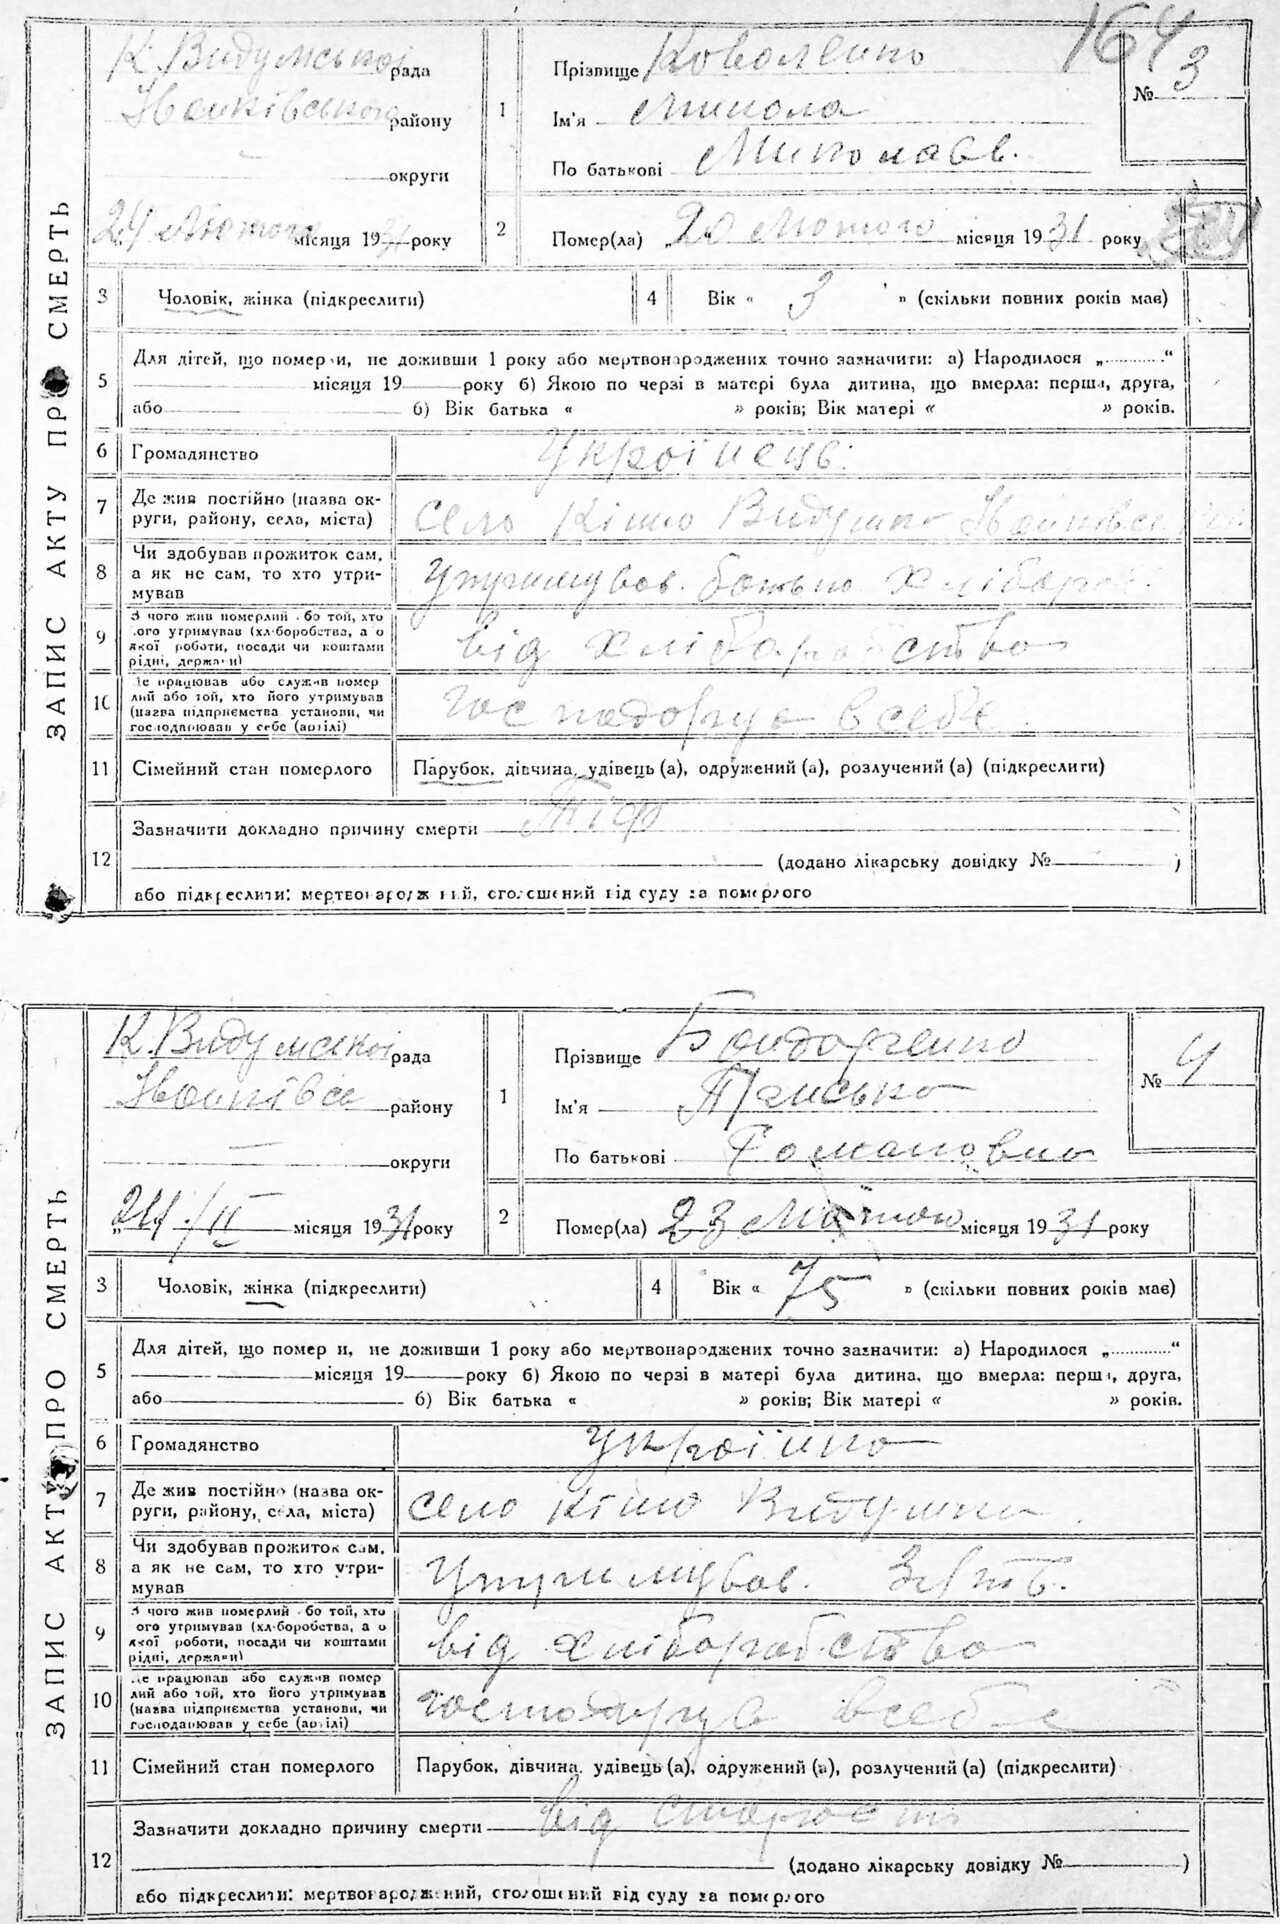 164
ЗАПИС АКТУ ПРО СМЕРТЬ
К. Видумської рада
Іванківського району
округи
24 Лютого місяця 1931 року
1
Прізвище Коваленко
Ім'я Микола
По батькові Миколаєв.
№ 3
2
Помер(ла) „20 Лютого місяця 1931 року
3 Чоловік, жінка (підкреслити)
4 Вік « 3 » (скільки повних років мав)
5 Для дітей, що померли, не доживши 1 року або мертвонароджених точно зазначити: а) Народилося „............“
місяця 19 року б) Якою по черзі в матері була дитина, що вмерла: перша, друга,
або б) Вік батька « » років; Вік матері « » років.
6 Громадянство Українець
7 Де жив постійно (назва ок-
руги, району, села, міста) село Кішо Видумка
8 Чи здобував прожиток сам,
а як не сам, то хто утри-
мував
утримував батько хлібороб
9 З чого жив померлий або той, хто
його утримував (хліборобства, а о
якої роботи, посади чи коштами
рідні, держави)
від хліборобства
10 Де працював або служив помер
лий або той, хто його утримував
(назва підприємства установи, чи
господарював у себе (артілі)
господорує в себе
11 Сімейний стан померлого Парубок, дівчина, удівець (а), одружений (а), розлучений (а) (підкреслити)
12 Зазначити докладно причину смерти Тіф
(додано лікарську довідку № )
або підкреслити: мертвонароджений, оголошений від суду за померлого
ЗАПИС АКТУ ПРО СМЕРТЬ
К. Видумської рада
Іванківск району
округи
„24 / II місяця 1931 року
1
Прізвище Бондаренко
Ім'я
По батькові Романовна
№ 4
2
Помер(ла) 23 Лютого місяця 1931 року
3 Чоловік, жінка (підкреслити)
4 Вік « 75 » (скільки повних років мав)
5 Для дітей, що померли, не доживши 1 року або мертвонароджених точно зазначити: а) Народилося „............“
місяця 19 року б) Якою по черзі в матері була дитина, що вмерла: перша, друга,
або б) Вік батька « » років; Вік матері « » років.
6 Громадянство Українка
7 Де жив постійно (назва ок-
руги, району, села, міста) село Кішо Видумка
8 Чи здобував прожиток сам,
а як не сам, то хто утри-
мував
утримував. Зять.
9 З чого жив померлий або той, хто
його утримував (хліборобства, а о
якої роботи, посади чи коштами
рідні, держави)
від хліборобства
10 Де працював або служив помер
лий або той, хто його утримував
(назва підприємства установи, чи
господарював у себе (артілі)
господарує всебе
11 Сімейний стан померлого Парубок, дівчина, удівець (а), одружений (а), розлучений (а) (підкреслити)
12 Зазначити докладно причину смерти від старости
(додано лікарську довідку № )
або підкреслити: мертвонароджений, оголошений від суду за померлого